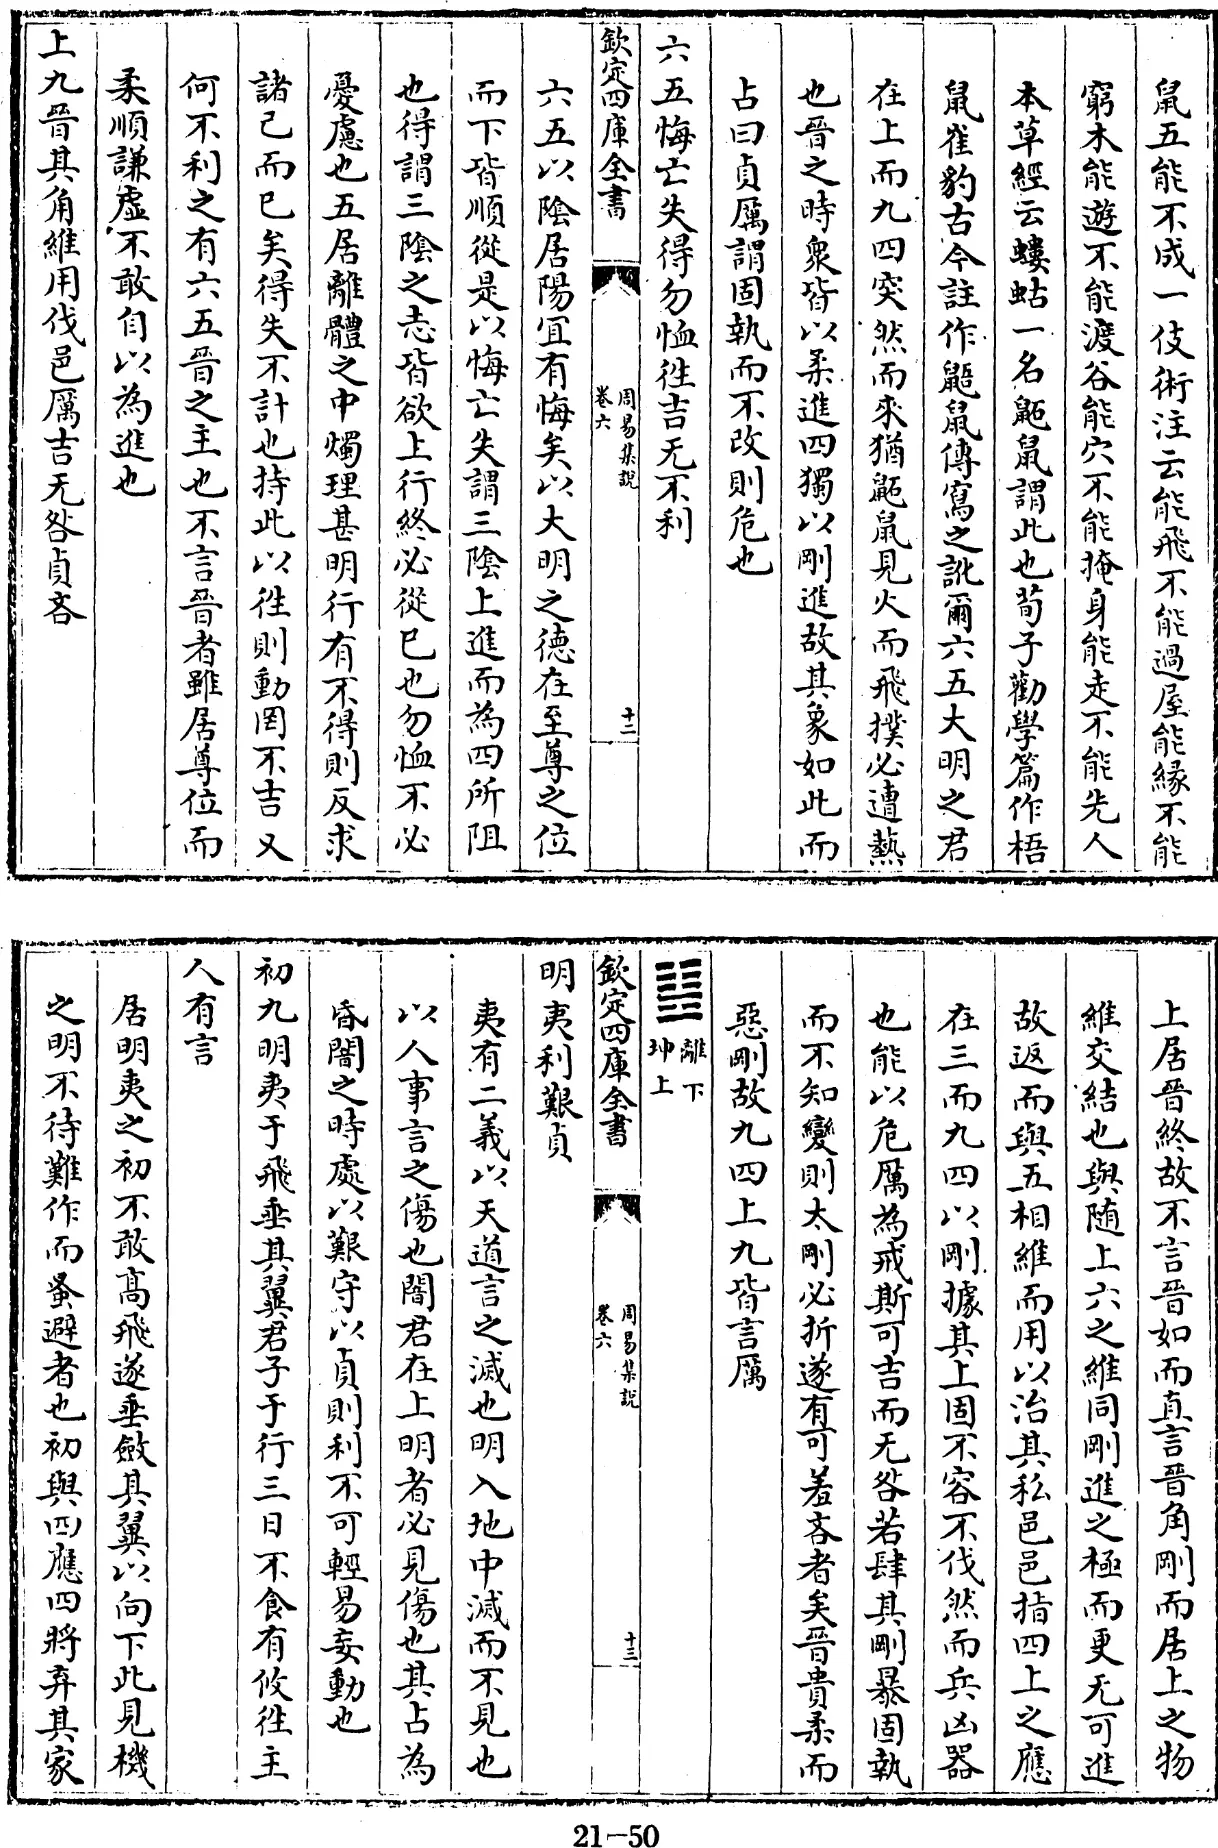 鼠五能不成一伎術注云能飛不能過屋能緣不能
窮木能遊不能渡谷能穴不能掩身能走不能先人
本草經云螻蛄一名鼫鼠謂此也荀子勸學篇作梧
鼠崔豹古今註作鼯鼠傳寫之訛爾六五大明之君
在上而九四突然而來猶鼫鼠見火而飛撲必遭熱
也晉之時衆皆以柔進四獨以剛進故其象如此而
占曰貞厲謂固執而不改則危也
六五悔亡失得勿恤徃吉无不利
欽定四庫全書
周易集說
卷六
十二
六五以陰居陽宜有悔矣以大明之德在至尊之位
而下皆順從是以悔亡失謂三陰上進而為四所阻
也得謂三陰之志皆欲上行終必從已也勿恤不必
憂慮也五居離體之中燭理甚明行有不得則反求
諸己而已矣得失不計也持此以徃則動罔不吉又
何不利之有六五晉之主也不言晉者雖居尊位而
柔順謙虛不敢自以為進也
上九晉其角維用伐邑厲吉无咎貞吝
上居晉終故不言晉如而直言晉角剛而居上之物
維交結也與随上六之維同剛進之極而更无可進
故返而與五相維而用以治其私邑邑指四上之應
在三而九四以剛據其上固不容不伐然而兵凶器
也能以危厲為戒斯可吉而无咎若肆其剛暴固執
而不知變則太剛必折遂有可羞吝者矣晉貴柔而
惡剛故九四上九皆言厲
離下
坤上
欽定四庫全書
周易集說
卷六
十三
明夷利艱貞
夷有二義以天道言之滅也明入地中滅而不見也
以人事言之傷也闇君在上明者必見傷也其占為
昏闇之時處以艱守以貞則利不可輕易妄動也
初九明夷于飛垂其翼君子于行三日不食有攸徃主
人有言
居明夷之初不敢高飛遂垂斂其翼以向下此見機
之明不待難作而蚤避者也初與四應四將弃其家
21-50